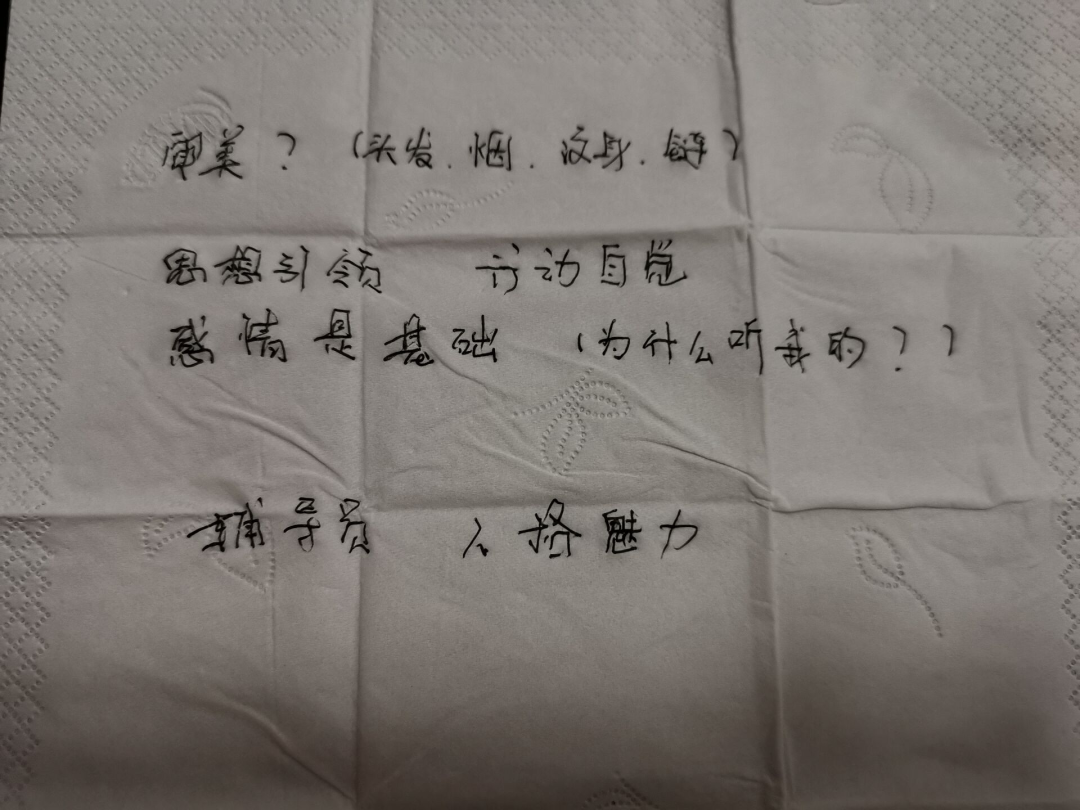 审美？（头发.烟.纹身.链）
思想引领 行动自觉
感情是基础（为什么听我的？）
辅导员 人格魅力